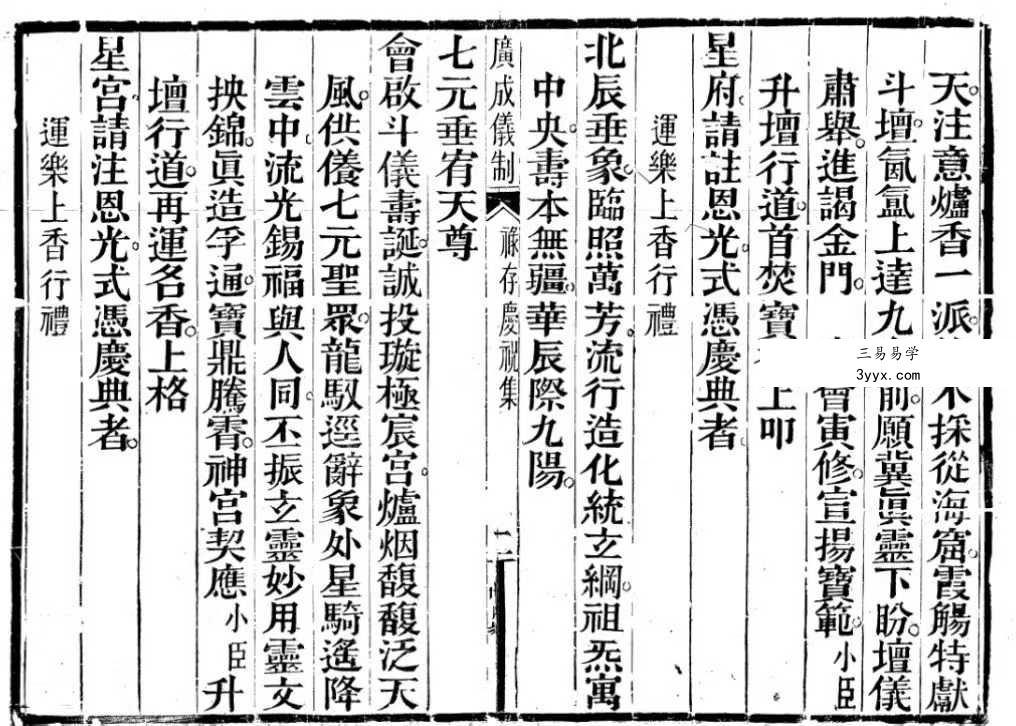 天。注意爐香一派。採從海窟。霞觴特獻
斗壇。氤氳上達九前。願冀眞靈下盼。壇儀
肅舉。進謁金門。會寅修。宣揚寶範。小臣
升壇行道。首焚寶上叩
星府。請註恩光。式憑慶典者
運樂上香行禮
北辰垂象。臨照萬芳。流行造化統玄綱。祖炁寓
中央。壽本無疆。華辰際九陽。
廣成儀制 祿存慶祝集 二
七元垂宥天尊
會啟斗儀壽誕。誠投璇極宸宮。爐烟馥馥泛天
風。供儀七元聖眾。龍馭逕辭象外星騎遙降
雲中。流光錫福與人同。丕振玄靈妙用靈文
抰錦。眞造孚通。寶鼎騰霄。神宮契應小臣升
壇行道。再運名香。上格
星宮。請注恩光。式憑慶典者。
運樂上香行禮
三易易学
3yyx.com